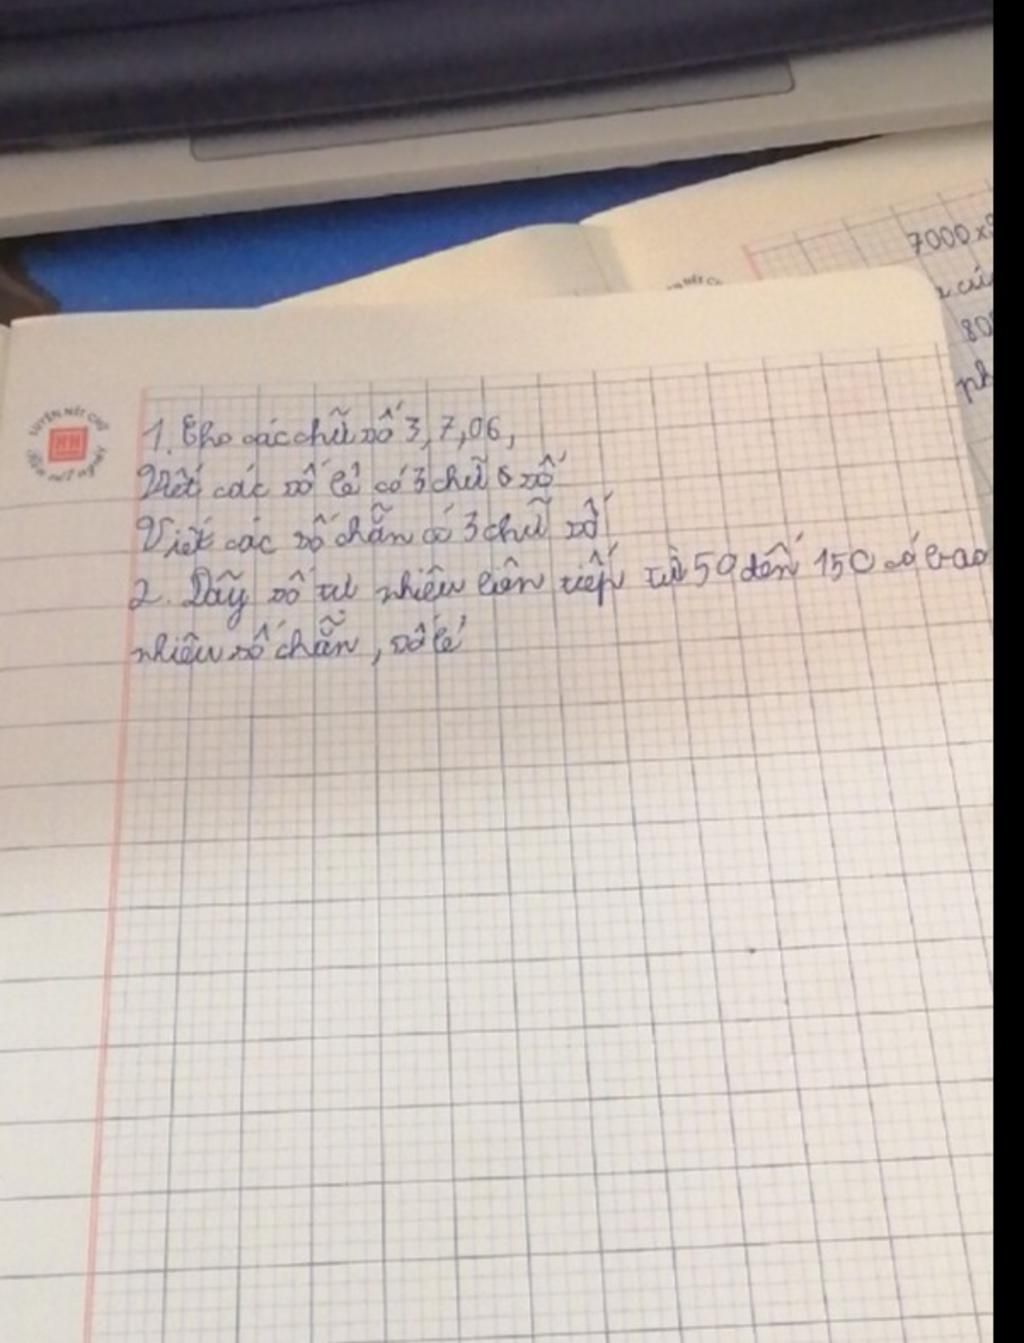 7000x
80
ph
LUYỆN NÉT CHỮ
HH
RÈN NẾT NGƯỜI
1. Cho các chữ số 3, 7, 06,
Viết các số lẻ có 3 chữ số
Viết các số chẵn có 3 chữ số
2. Dãy số tự nhiên liên tiếp từ 50 đến 150 có bao
nhiêu số chẵn, số lẻ